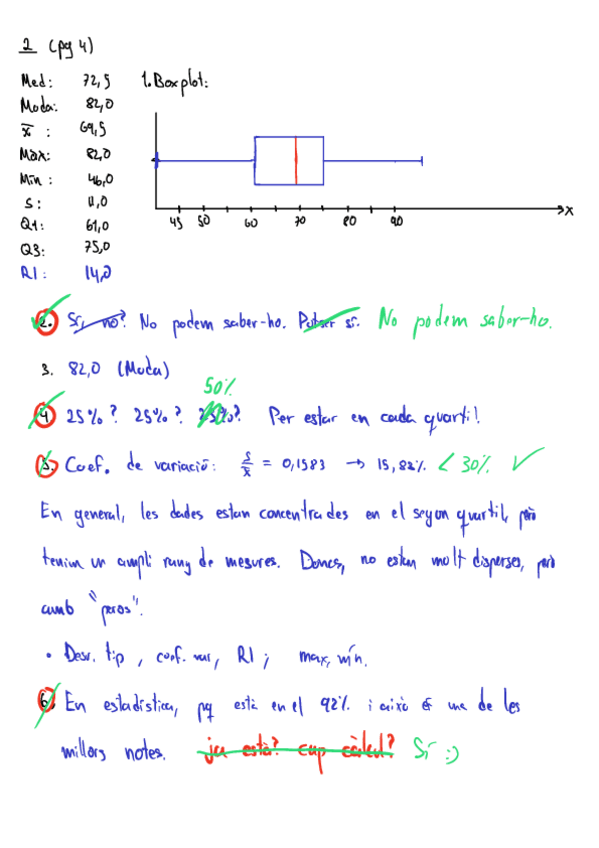 2 (pg 4)
Med: 72,5 1. Boxplot:
Moda: 82,0
x̄ : 69,5
Max: 82,0
Mín: 46,0
S: 11,0
Q1: 61,0
Q3: 75,0
RI: 14,0
45 50 60 70 80 90 x
2. Sí, no? No podem saber-ho. Potser sí. No podem saber-ho.
3. 82,0 (Moda)
50%
4 25%? 25%? 25%? Per estar en cada quartil.
5. Coef. de variació: s/x̄ = 0,1583 → 15,82% < 30% ✓
En general, les dades estan concentrades en el segon quartil, però
tenim un ampli rang de mesures. Doncs, no estan molt disperses, però
amb "peros".
• Desv. tip, coef. var, RI; max, mín.
6. En estadística, pq està en el 92% i això és una de les
millors notes. ja està? cap càlcul? Sí :)